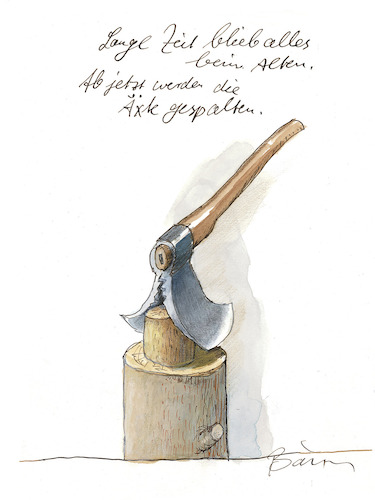 Lange Zeit blieb alles
beim Alten.
Ab jetzt werden die
Äxte gespalten.